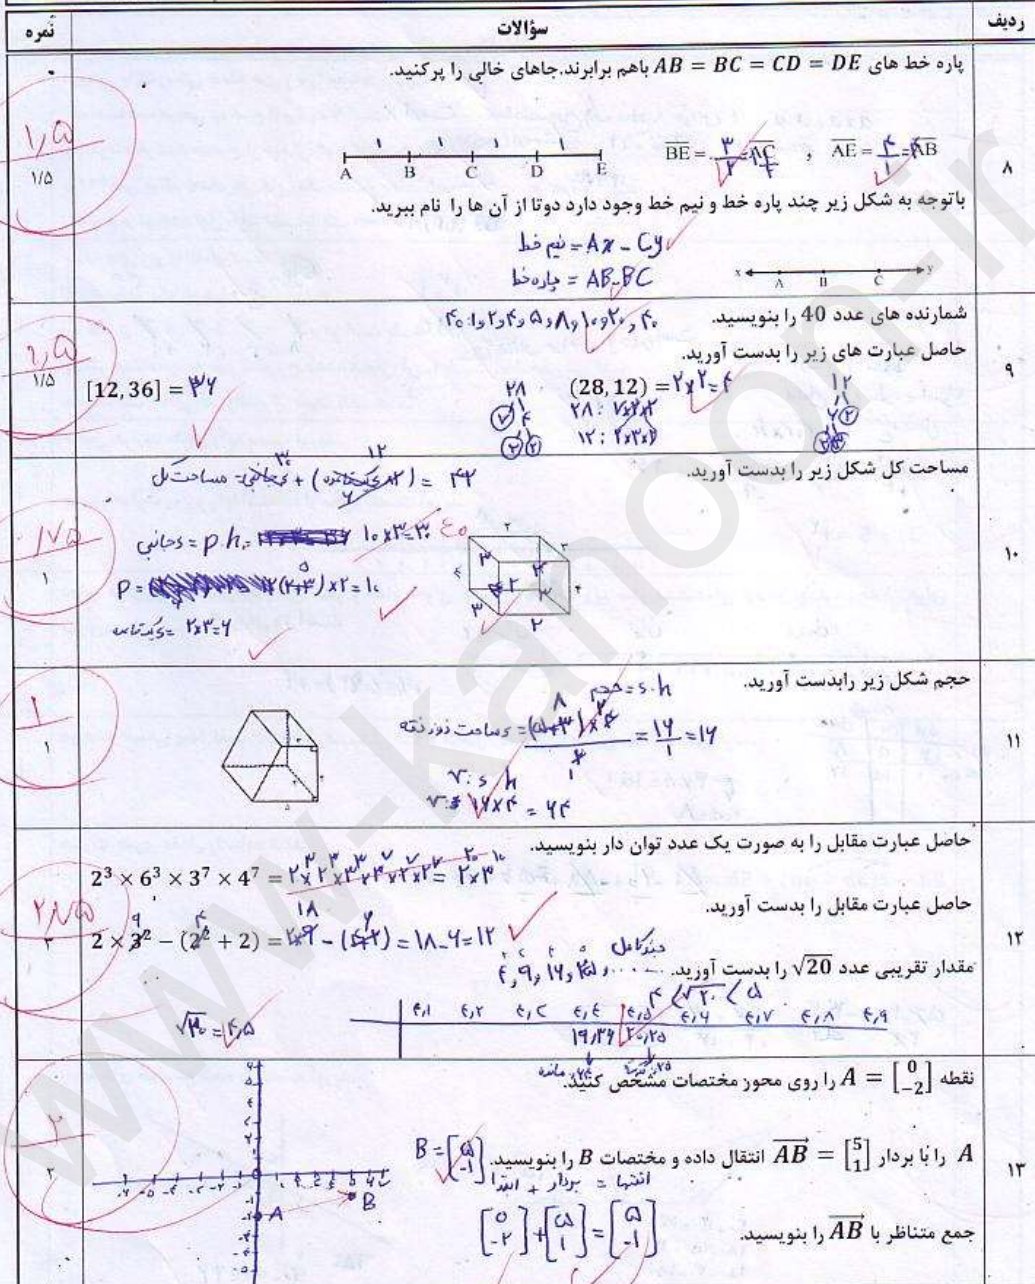 ردیف سؤالات نمره
پاره خط های AB = BC = CD = DE باهم برابرند.جاهای خالی را پرکنید.
۸
۱/۵
۱/۵
A B C D E
BE = ۳/۲ AC , AE = ۴/۱ AB
باتوجه به شکل زیر چند پاره خط و نیم خط وجود دارد دوتا از آن ها را نام ببرید
نیم خط = Ax - Cy
پاره خط = AB - BC
x A B C y
شمارنده های عدد 40 را بنویسید.
۴۰: ۱و۲و۴و۵و۸و۱۰و۲۰و۴۰
حاصل عبارت های زیر را بدست آورید.
۹
۱/۵
[12,36] = ۳۶
(28,12) = ۲×۲=۴
۲۸
۱۲
۲۸: ۷×۲×۲
۱۲: ۲×۳×۲
مساحت کل شکل زیر را بدست آورید.
۱۰
۱
مساحت کل
= ۴۲
جانبی = p.h = ۱۰×۳=۳۰
P = (۲+۳)×۲=۱۰
= ۲×۳=۶
حجم شکل زیر رابدست آورید.
۱۱
۱
۱
حجم = s.h
مساحت ذوزنقه = (۵+۳)×۴ = ۱۶/۱ = ۱۶
V = s.h
V = ۱۶×۴ = ۶۴
حاصل عبارت مقابل را به صورت یک عدد توان دار بنویسید.
2³ × 6³ × 3⁷ × 4⁷ = ۲³×۲³×۳³×۳⁷×۲⁷×۲⁷ = ۲²⁰×۳¹⁰
حاصل عبارت مقابل را بدست آورید.
۱۲
۳
2 × 3² − (2² + 2) = ۲×۹ - (۴+۲) = ۱۸-۶=۱۲
مقدار تقریبی عدد √20 را بدست آورید.
۴,۹,۱۶,۲۵,.....
۴<√۲۰<۵
۴,۱ ۴,۲ ۴,۳ ۴,۴ ۴,۵ ۴,۶ ۴,۷ ۴,۸ ۴,۹
۱۹,۳۶ ۲۰,۲۵
√۲۰ = ۴,۵
نقطه A = [0 −2] را روی محور مختصات مشخص کنید.
A را با بردار AB = [5 1] انتقال داده و مختصات B را بنویسید.
B = [۵ -۱]
انتها = بردار + ابتدا
۱۳
۲
۲
A B
جمع متناظر با AB را بنویسید.
[۰ -۲] + [۵ ۱] = [۵ -۱]
www-kanoon-ir